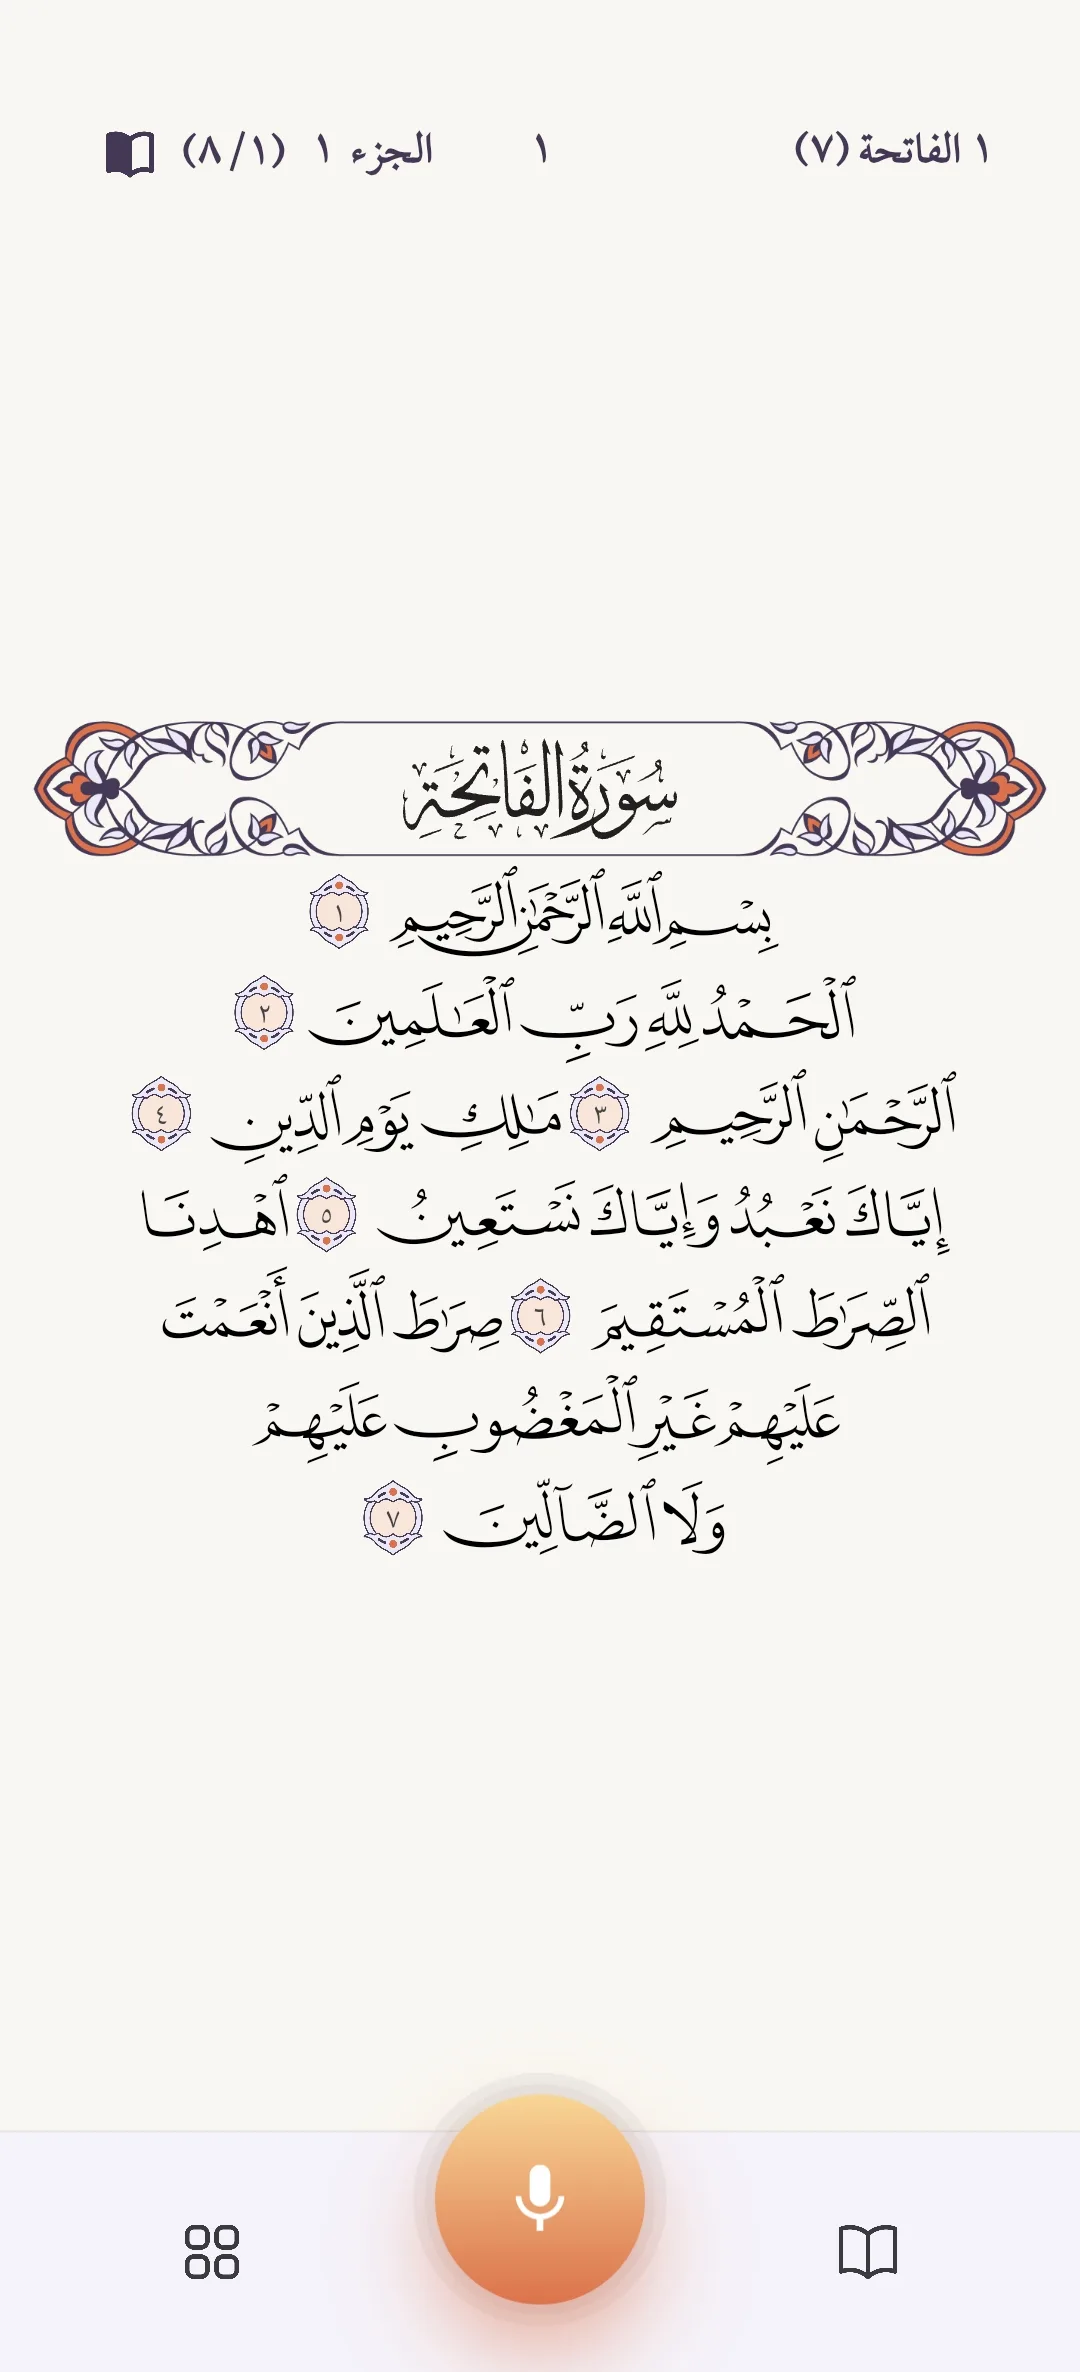 ١ الفاتحة (٧) ١ الجزء ١ (٨/١)
سُورَةُ الفَاتِحَةِ
بِسْمِ ٱللَّهِ ٱلرَّحْمَٰنِ ٱلرَّحِيمِ ١
ٱلْحَمْدُ لِلَّهِ رَبِّ ٱلْعَٰلَمِينَ ٢
ٱلرَّحْمَٰنِ ٱلرَّحِيمِ ٣ مَٰلِكِ يَوْمِ ٱلدِّينِ ٤
إِيَّاكَ نَعْبُدُ وَإِيَّاكَ نَسْتَعِينُ ٥ ٱهْدِنَا
ٱلصِّرَٰطَ ٱلْمُسْتَقِيمَ ٦ صِرَٰطَ ٱلَّذِينَ أَنْعَمْتَ
عَلَيْهِمْ غَيْرِ ٱلْمَغْضُوبِ عَلَيْهِمْ
وَلَا ٱلضَّآلِّينَ ٧